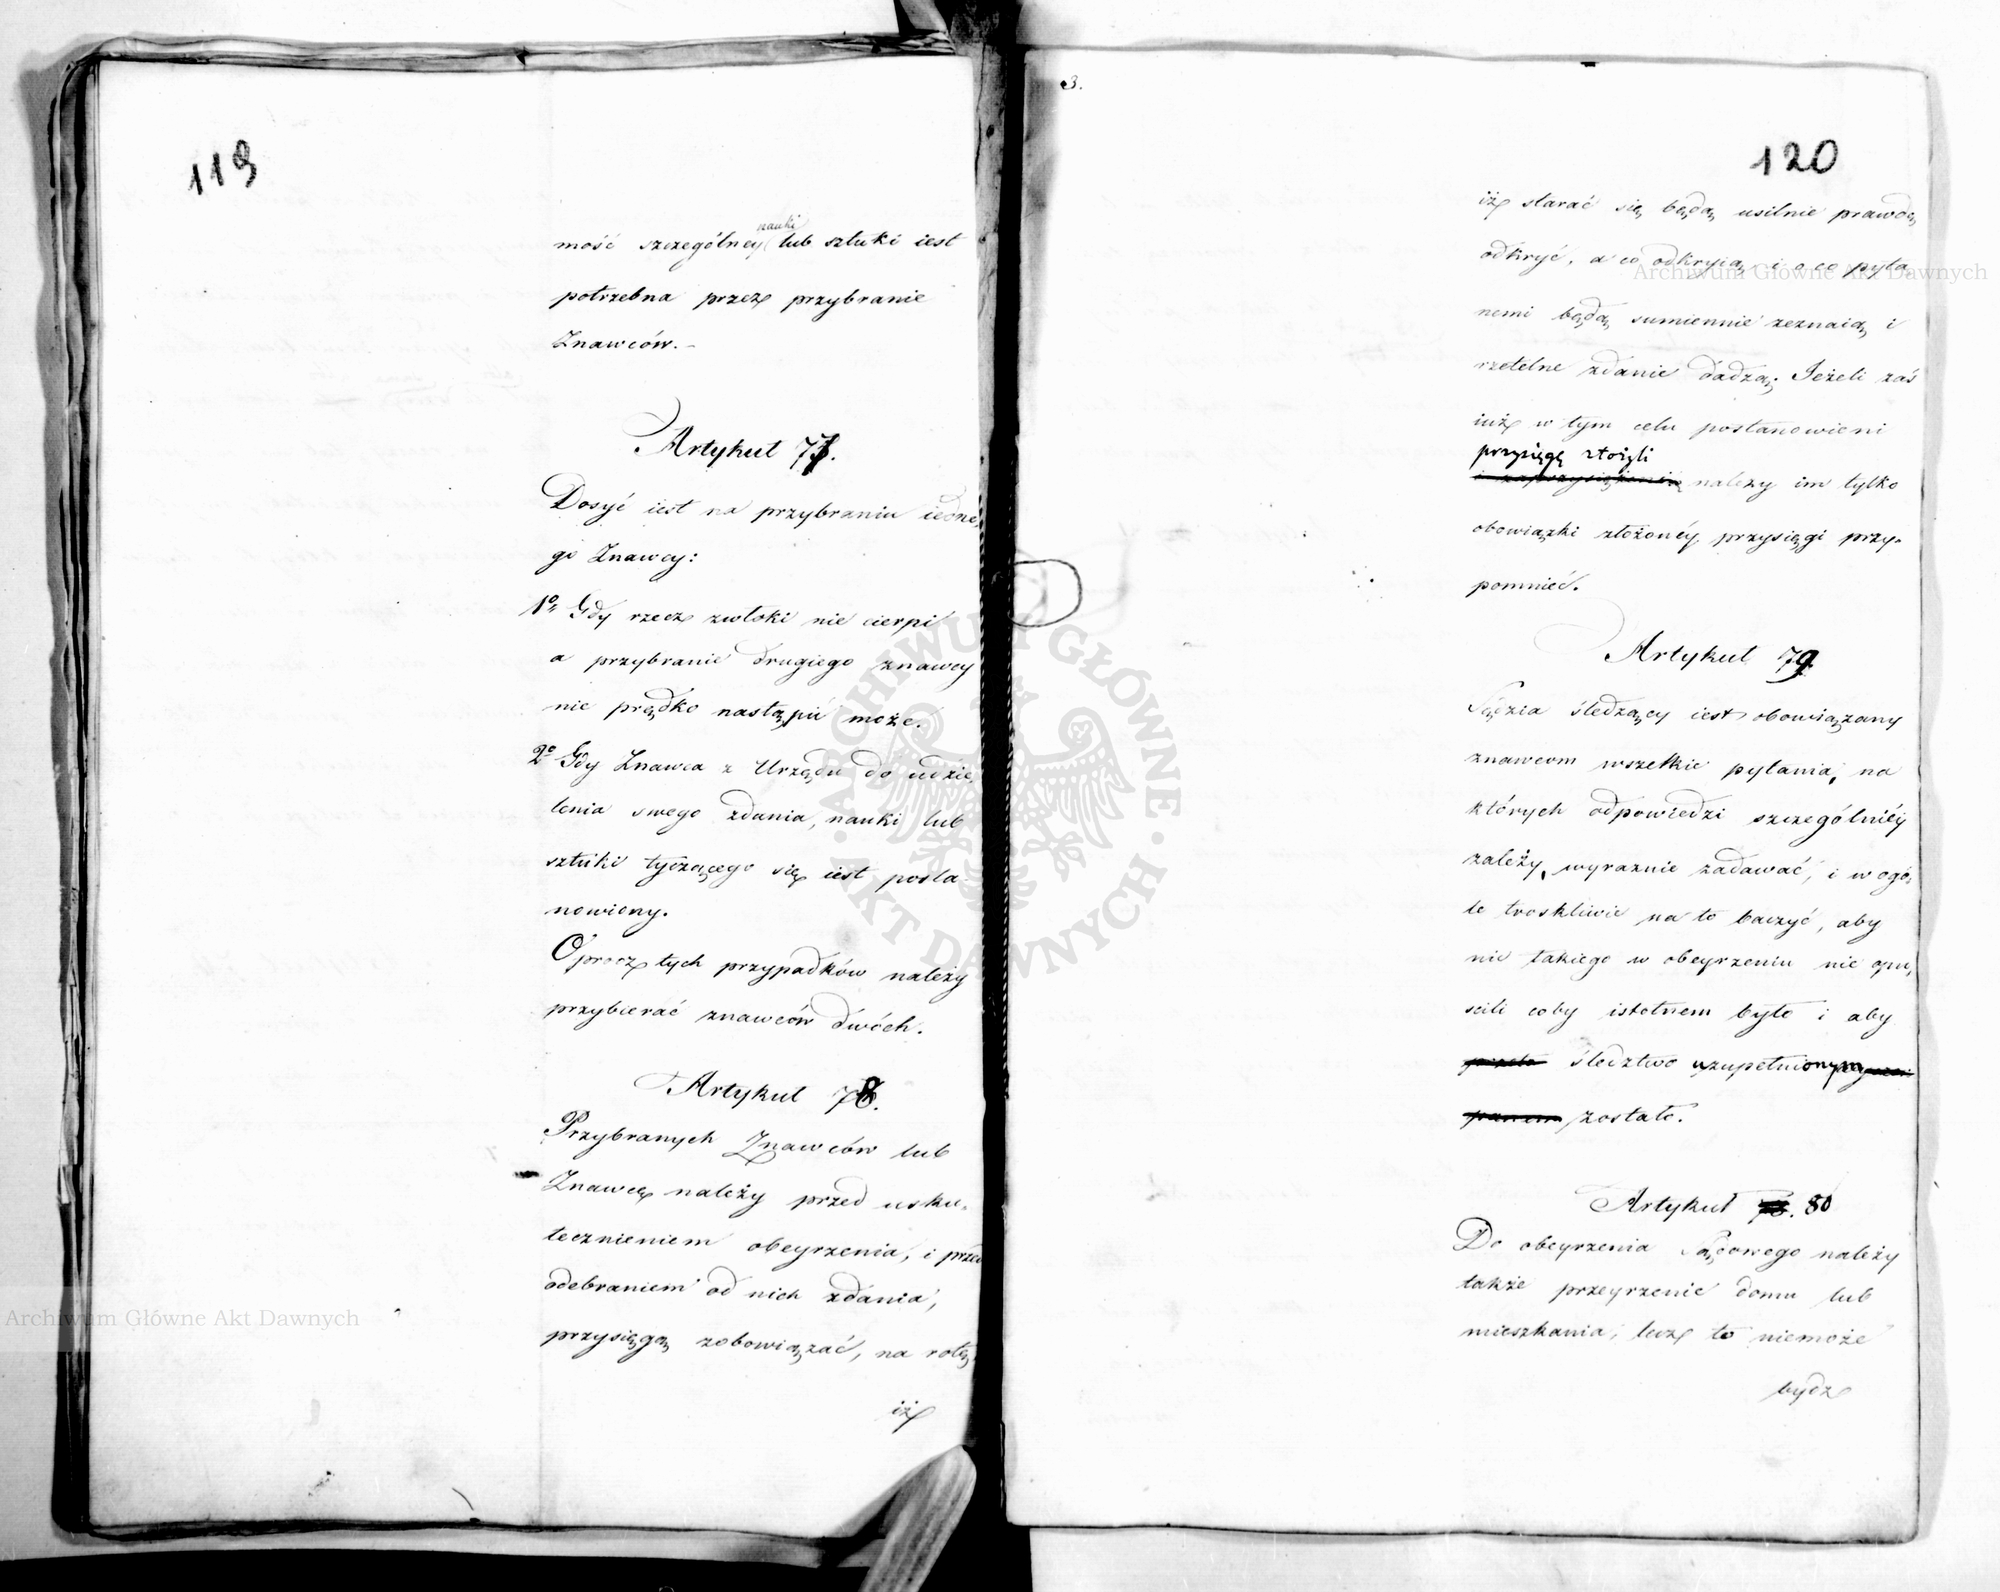 119
mość szczególney nauki lub sztuki iest
potrzebna przez przybranie
Znawców. –
Artykuł 77.
Dosyć iest na przybraniu iedne,
go Znawcy:
1o Gdy rzecz zwłoki nie cierpi
a przybranie drugiego znawcy
nie prędko nastąpić może.
2o Gdy Znawca z Urzędu do udzie,
lenia swego zdania, nauki lub
sztuki tyczącego się iest posta
nowiony.
Oprocz tych przypadków należy
przybierać znawców dwóch.
Artykuł 78.
Przybranych Znawców lub
Znawcę należy przed usku,
tecznieniem obeyrzenia, i przed
odebraniem od nich zdania,
przysięgą zobowiązać, na rotę,
iż
3.
120
iż starać się będą usilnie prawdę
odkryć, a co odkryią i o co pyta
nemi będą sumiennie zeznaią i
rzetelne zdanie dadzą. Jeżeli zaś
iuż w tym celu postanowieni
przysięgę złożyli
należy im tylko
obowiązki złożonéy przysięgi przy,
pomnieć.
Artykuł 79
Sędzia śledzący iest obowiązany
znawcom wszelkie pytania, na
których odpowiedzi szczególniéy
zależy, wyraznie zadawać, i w ogó,
le troskliwie na to baczyć, aby
nic takiego w obeyrzeniu nie opu,
scili coby istotnem było i aby
śledztwo uzupełnionym
zostało.
Artykuł 80
Do obeyrzenia Sądowego należy
także przeyrzenie domu lub
mieszkania, lecz to niemoże
bydz
Archiwum Główne Akt Dawnych
Archiwum Główne Akt Dawnych
ARCHIWUM GŁÓWNE · AKT DAWNYCH ·